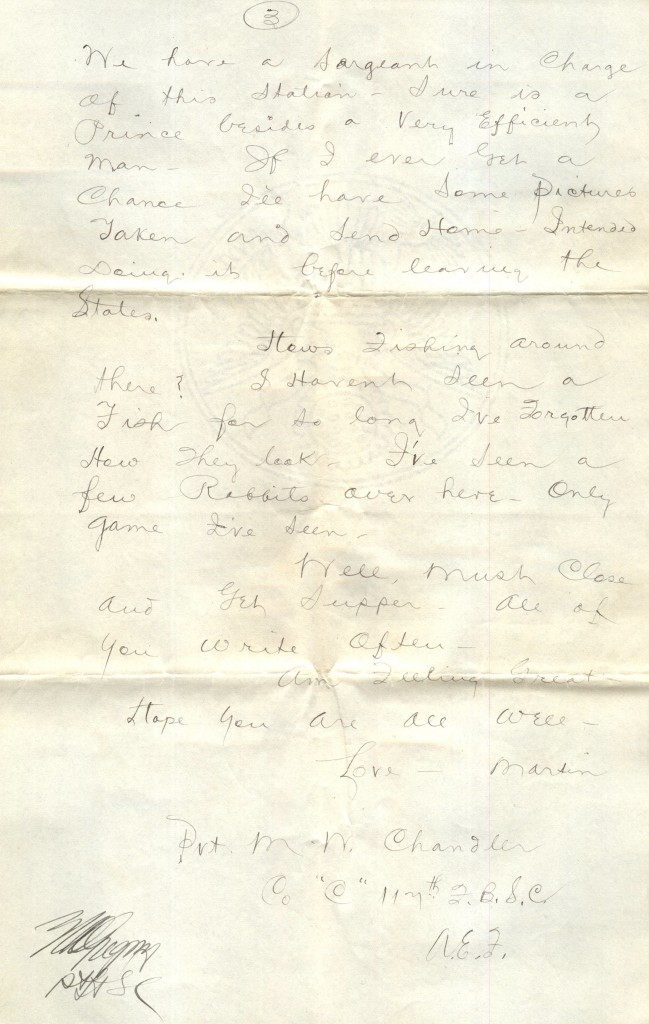 3
We have a Sargeant in Charge
of this Station - Sure is a
Prince besides a Very Efficient
Man - If I ever Get a
Chance I'll have Some Pictures
Taken and Send Home - Intended
Doing it before leaving the
States.
Hows Fishing around
there? I Havent Seen a
Fish for so long I've Forgotten
How They look - I've Seen a
few Rabbits over here - Only
game I've Seen -
Well, Must Close
and Get Supper - All of
You write Often -
Am Feeling Great -
Hope You are all well -
Love - Martin
Pvt. M. W. Chandler
Co "C" 117th F. B. S. C.
A. E. F.